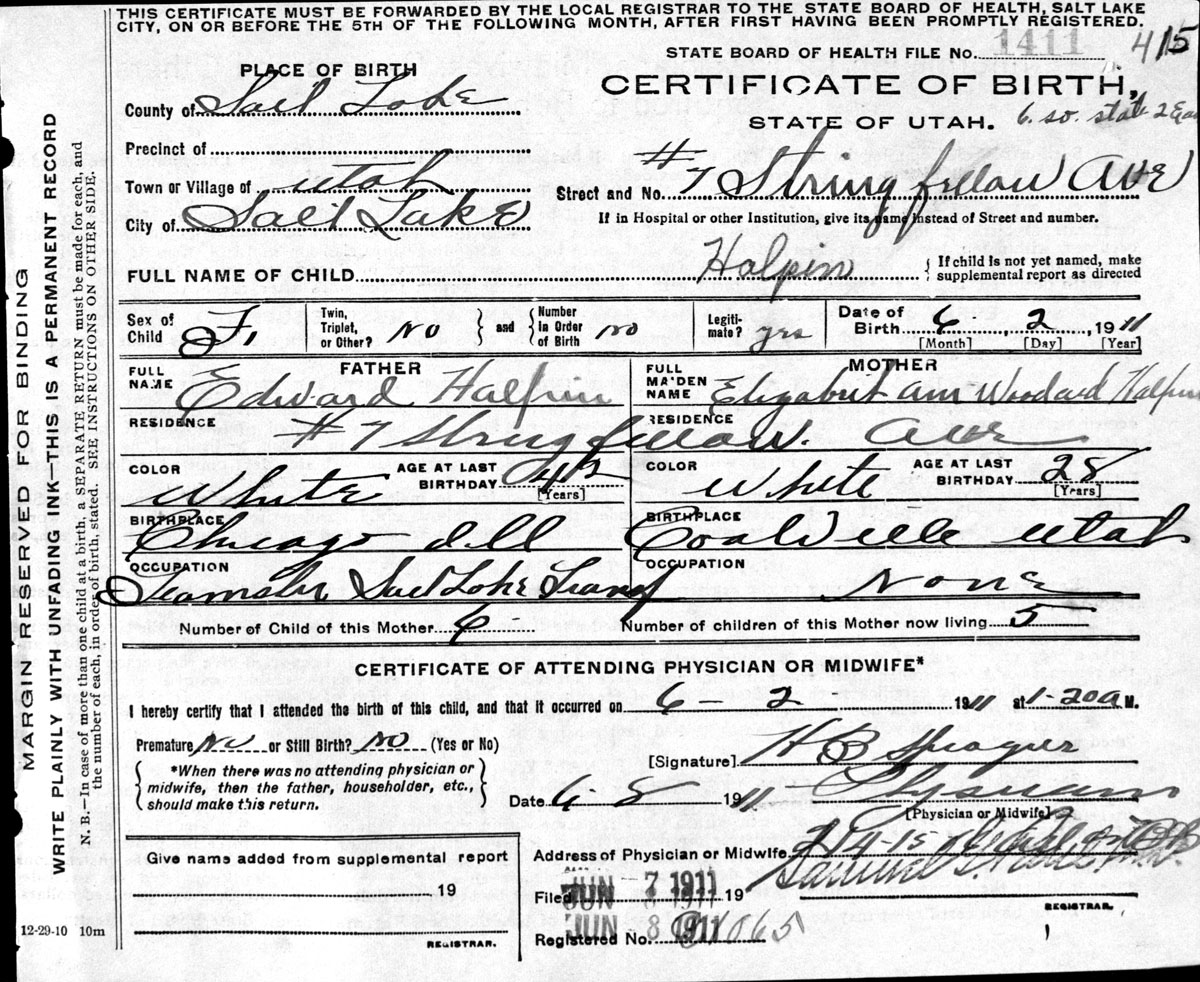 THIS CERTIFICATE MUST BE FORWARDED BY THE LOCAL REGISTRAR TO THE STATE BOARD OF HEALTH, SALT LAKE
CITY, ON OR BEFORE THE 5TH OF THE FOLLOWING MONTH, AFTER FIRST HAVING BEEN PROMPTLY REGISTERED.
STATE BOARD OF HEALTH FILE No. 1411 415
PLACE OF BIRTH
CERTIFICATE OF BIRTH,
County of Salt Lake
STATE OF UTAH. 6. so. stat 2 Ea
Precinct of
Town or Village of Utah
Street and No. #7 Stringfellow Ave
City of Salt Lake
If in Hospital or other Institution, give its name instead of Street and number.
FULL NAME OF CHILD Halpin
If child is not yet named, make
supplemental report as directed
Sex of Child F.
Twin, Triplet, or Other? No
and Number In Order of Birth no
Legitimate? yes
Date of Birth 6 2 1911
[Month] [Day] [Year]
FATHER
FULL NAME Edward Halpin
MOTHER
FULL MAIDEN NAME Elizabeth ann Woodard Halpin
RESIDENCE #7 Stringfellow. Ave
RESIDENCE
COLOR White
AGE AT LAST BIRTHDAY 42
[Years]
COLOR White
AGE AT LAST BIRTHDAY 28
[Years]
BIRTHPLACE Chicago Ill
BIRTHPLACE Coalville Utah
OCCUPATION Teamster Salt Lake Transf
OCCUPATION None
Number of Child of this Mother 6
Number of children of this Mother now living 5
CERTIFICATE OF ATTENDING PHYSICIAN OR MIDWIFE*
I hereby certify that I attended the birth of this child, and that it occurred on 6 - 2 1911 at 1-20a M.
Premature No or Still Birth? No (Yes or No)
[Signature] H B Sprague
*When there was no attending physician or
midwife, then the father, householder, etc.,
should make this return.
Date 6 8 1911 Physician
[Physician or Midwife]
Give name added from supplemental report
Address of Physician or Midwife 214-15
19
Filed JUN 7 1911 19
JUN 8 1911
REGISTRAR.
Registered No. 1065
REGISTRAR.
12-29-10 10m
MARGIN RESERVED FOR BINDING
WRITE PLAINLY WITH UNFADING INK—THIS IS A PERMANENT RECORD
N. B.—In case of more than one child at a birth, a SEPARATE RETURN must be made for each, and
the number of each, in order of birth, stated. SEE INSTRUCTIONS ON OTHER SIDE.